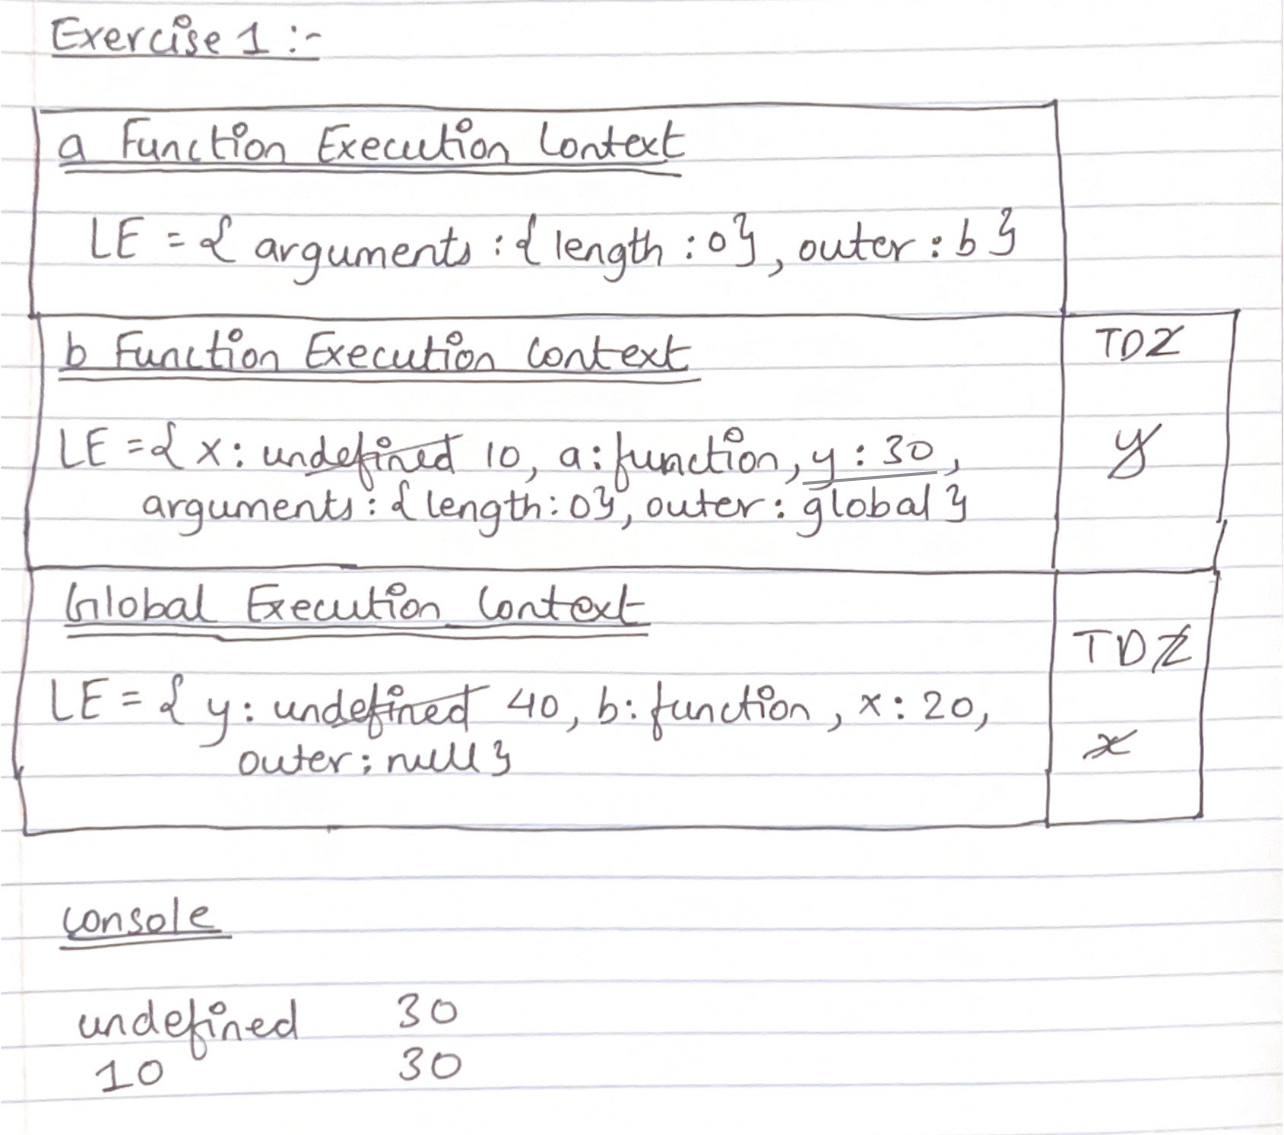 Exercise 1 :-
a Function Execution Context
LE = { arguments : { length : 0 }, outer : b }
b Function Execution Context
TDZ
LE = { x : undefined 10, a : function, y : 30,
y
arguments : { length : 0 }, outer : global }
Global Execution Context
TDZ
LE = { y : undefined 40, b : function, x : 20,
x
outer : null }
console
undefined 30
10 30